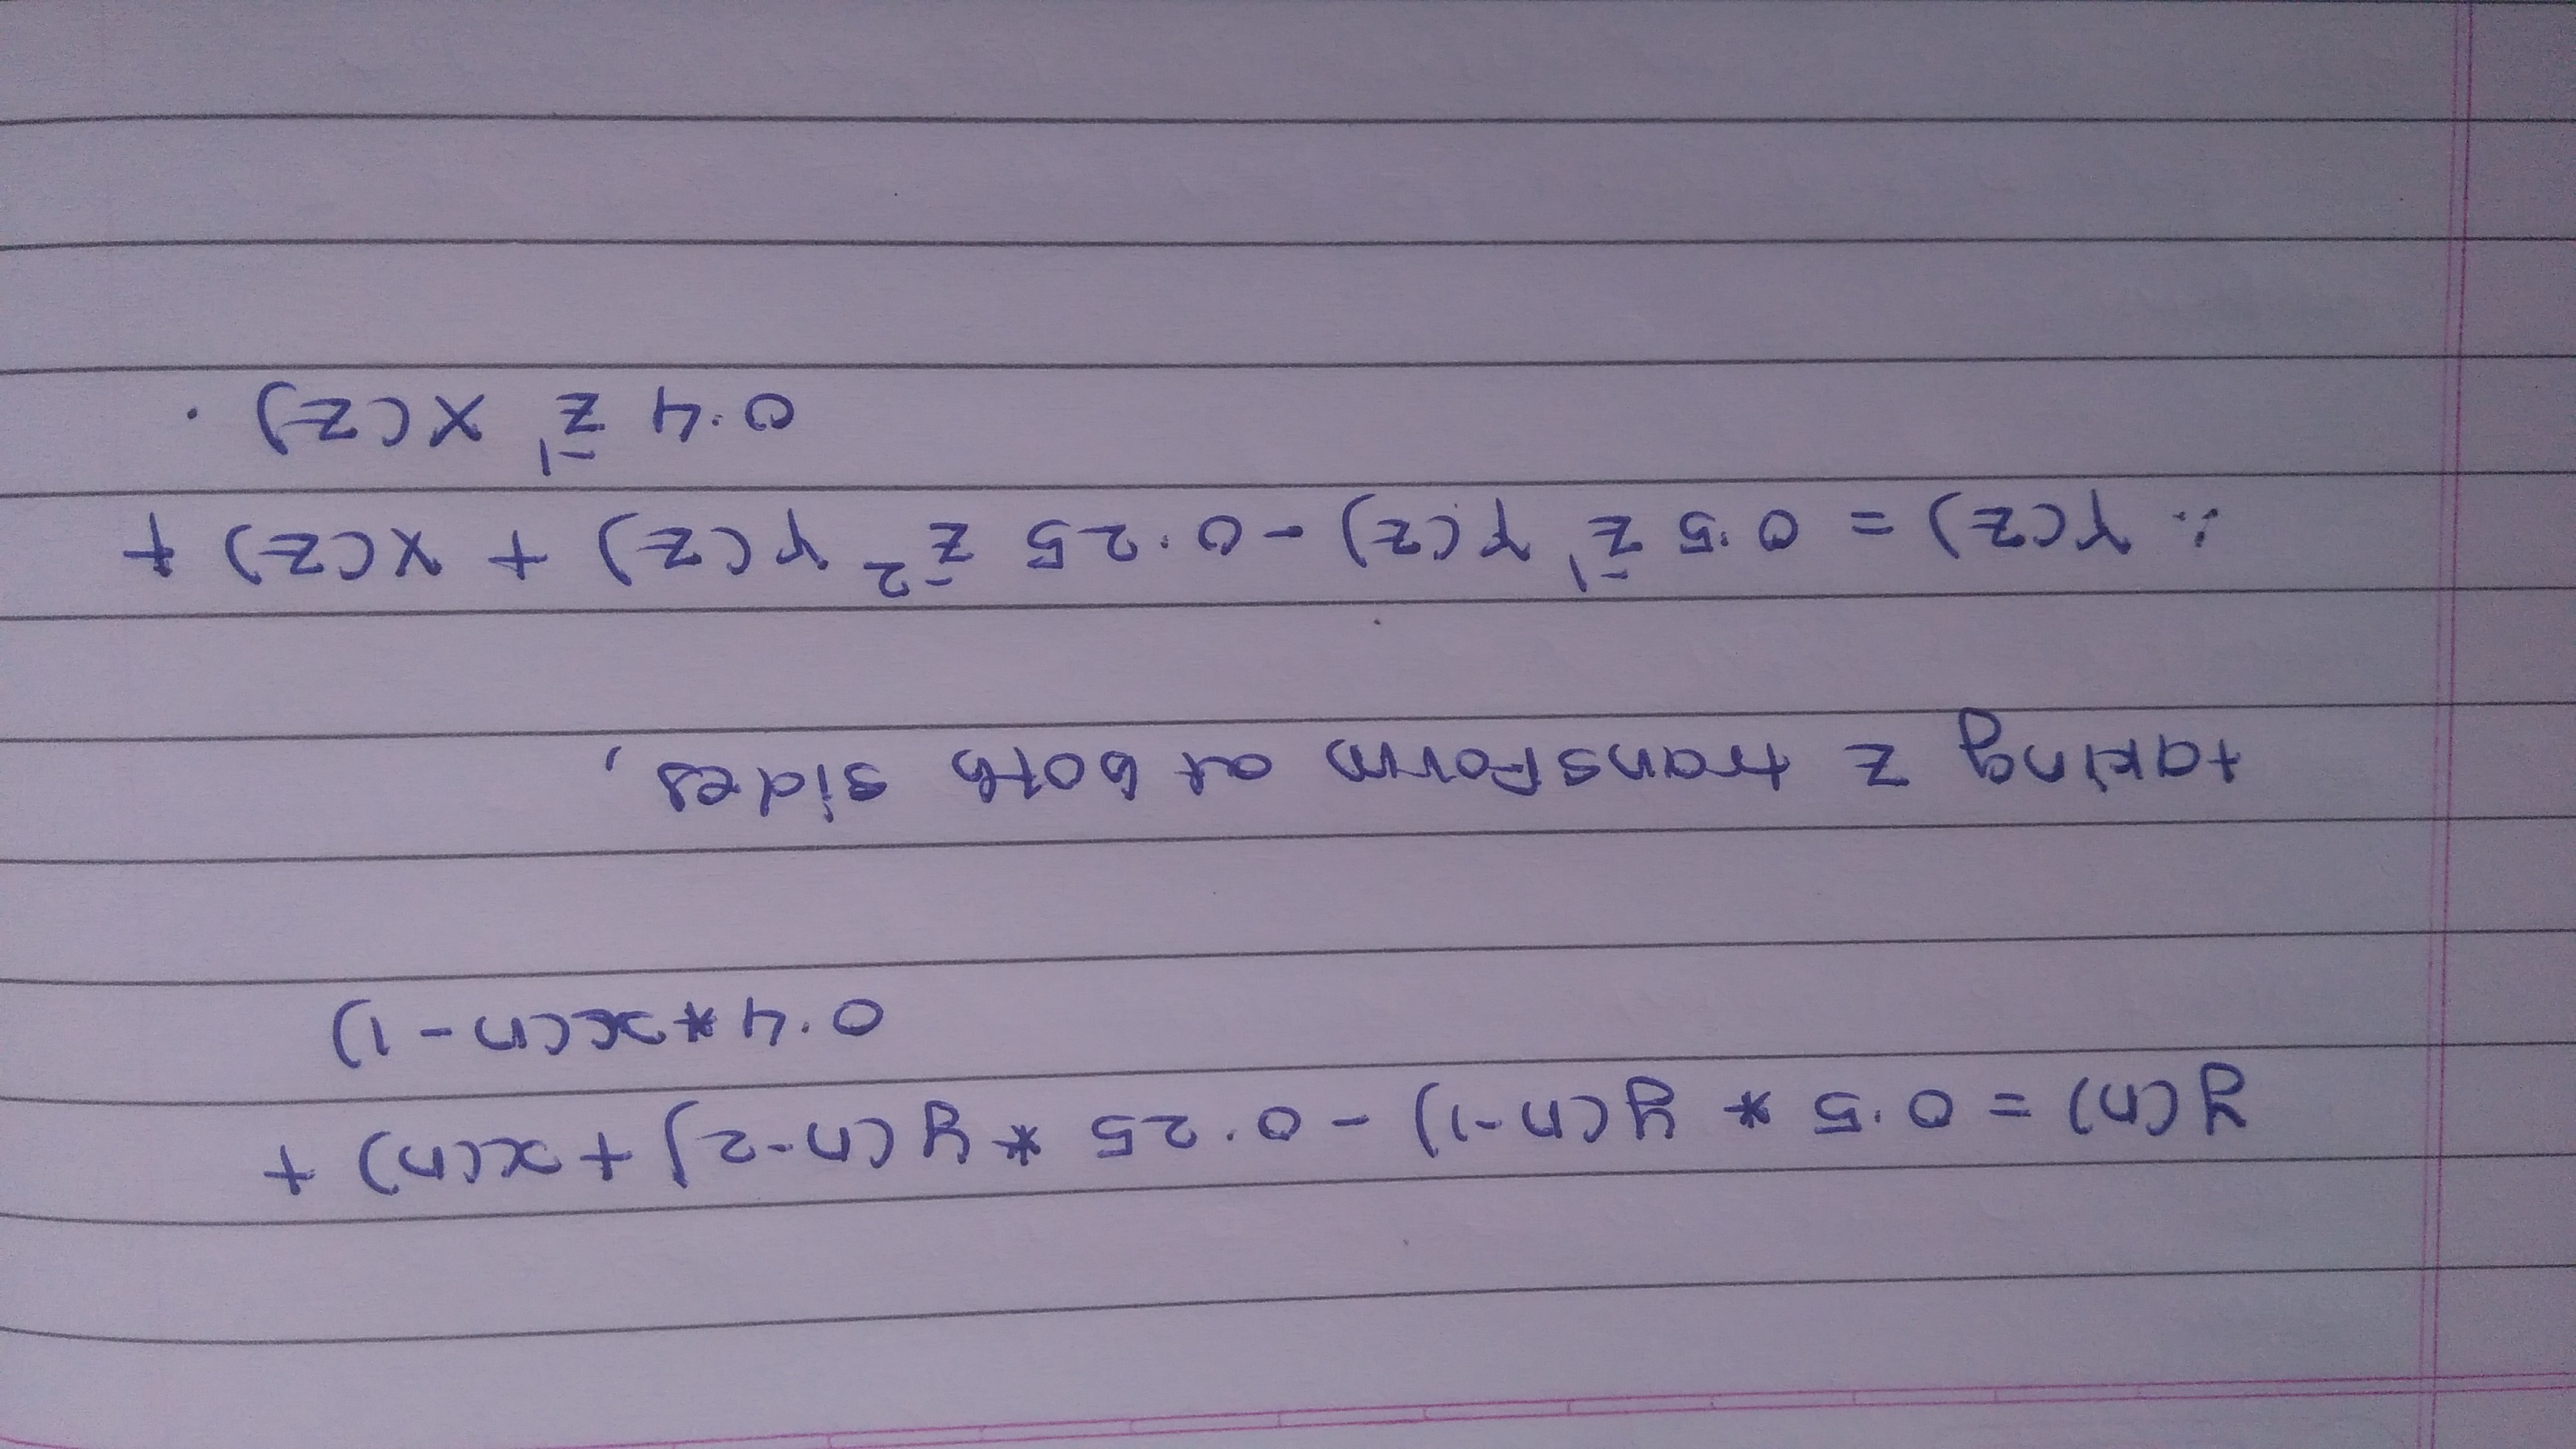 y(n) = 0.5 * y(n-1) - 0.25 * y(n-2) + x(n) +
0.4 * x(n-1)
taking z transform at both sides,
∴ Y(Z) = 0.5 z⁻¹ Y(Z) - 0.25 z⁻² Y(Z) + X(Z) +
0.4 z⁻¹ X(Z).